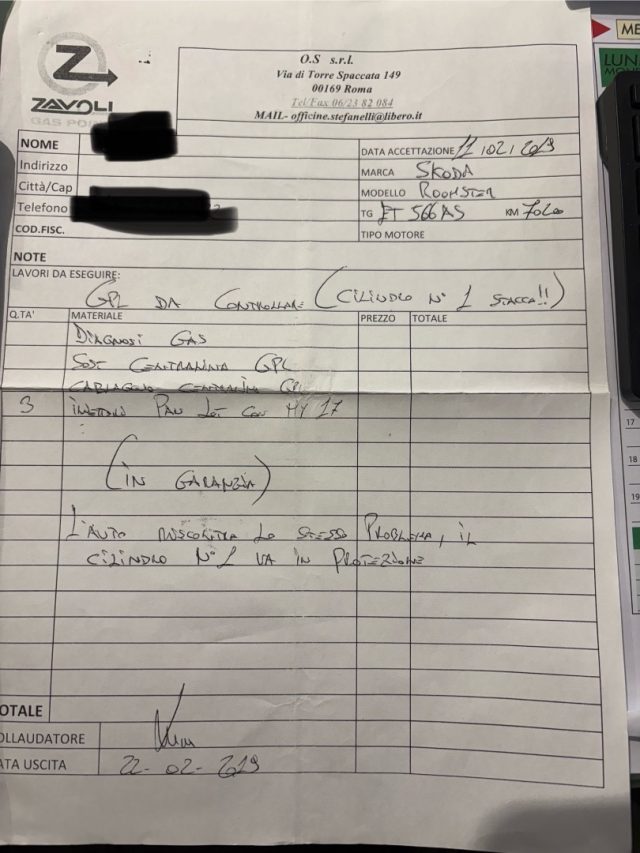 ZAVOLI
GAS POINT
O.S s.r.l.
Via di Torre Spaccata 149
00169 Roma
Tel/Fax 06/23 82 084
MAIL- officine.stefanelli@libero.it
ME
LUNE
NOME
Indirizzo
Città/Cap
Telefono
COD.FISC.
DATA ACCETTAZIONE 11/02/2019
MARCA SKODA
MODELLO ROOMSTER
TG 566AS KM
TIPO MOTORE
NOTE
LAVORI DA ESEGUIRE:
GPL DA CONTROLLARE (CILINDRO N°1 STACCA!!)
Q.TA' MATERIALE PREZZO TOTALE
DIAGNOSI GAS
SOST CENTRALINA GPL
CABLAGGIO CENTRALINA GPL
3 MY 17
(IN GARANZIA)
L'AUTO RISCONTRA LO STESSO PROBLEMA, IL
CILINDRO N°1 VA IN PROTEZIONE
17
18
19
OTALE
OLLAUDATORE
ATA USCITA 22-02-2019